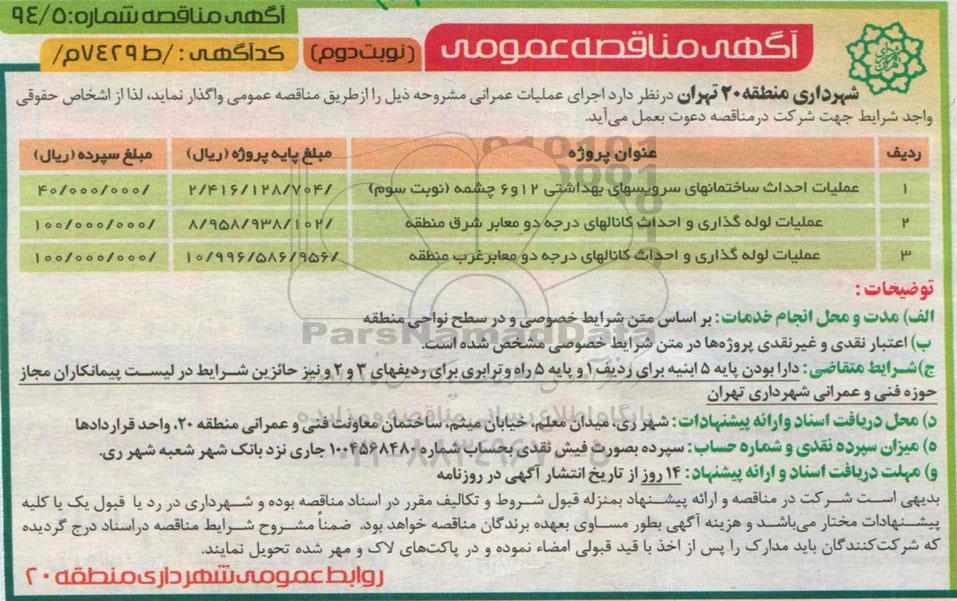 آگهی مناقصه شماره: ۹۴/۵
آگهی مناقصه عمومی (نوبت دوم) کدآگهی : /ط۷۴۲۹م/
شهرداری منطقه۲۰ تهران درنظر دارد اجرای عملیات عمرانی مشروحه ذیل را ازطریق مناقصه عمومی واگذار نماید، لذا از اشخاص حقوقی
واجد شرایط جهت شرکت درمناقصه دعوت بعمل می‌آید.
ردیف عنوان پروژه مبلغ پایه پروژه (ریال) مبلغ سپرده (ریال)
۱ عملیات احداث ساختمانهای سرویسهای بهداشتی ۱۲و۶ چشمه (نوبت سوم) ۲/۴۱۶/۱۲۸/۷۰۴/ ۴۰/۰۰۰/۰۰۰/
۲ عملیات لوله گذاری و احداث کانالهای درجه دو معابر شرق منطقه ۸/۹۵۸/۹۳۸/۱۰۲/ ۱۰۰/۰۰۰/۰۰۰/
۳ عملیات لوله گذاری و احداث کانالهای درجه دو معابرغرب منطقه ۱۰/۹۹۶/۵۸۶/۹۵۶/ ۱۰۰/۰۰۰/۰۰۰/
توضیحات :
الف) مدت و محل انجام خدمات: بر اساس متن شرایط خصوصی و در سطح نواحی منطقه
ParsNamadData
ب) اعتبار نقدی و غیرنقدی پروژه‌ها در متن شرایط خصوصی مشخص شده است.
ج)شرایط متقاضی: دارا بودن پایه ۵ ابنیه برای ردیف ۱ و پایه ۵ راه وترابری برای ردیفهای ۳ و ۲ و نیز حائزین شرایط در لیست پیمانکاران مجاز
حوزه فنی و عمرانی شهرداری تهران
د) محل دریافت اسناد وارائه پیشنهادات: شهر ری، میدان معلم، خیابان میثم، ساختمان معاونت فنی و عمرانی منطقه ۲۰، واحد قراردادها
ه) میزان سپرده نقدی و شماره حساب: سپرده بصورت فیش نقدی بحساب شماره ۱۰۰۴۵۶۸۴۸۰ جاری نزد بانک شهر شعبه شهر ری.
و) مهلت دریافت اسناد و ارائه پیشنهاد: ۱۴ روز از تاریخ انتشار آگهی در روزنامه
بدیهی است شرکت در مناقصه و ارائه پیشنهاد بمنزله قبول شروط و تکالیف مقرر در اسناد مناقصه بوده و شهرداری در رد یا قبول یک یا کلیه
پیشنهادات مختار می‌باشد و هزینه آگهی بطور مساوی بعهده برندگان مناقصه خواهد بود. ضمناً مشروح شرایط مناقصه دراسناد درج گردیده
که شرکت‌کنندگان باید مدارک را پس از اخذ با قید قبولی امضاء نموده و در پاکت‌های لاک و مهر شده تحویل نمایند.
روابط عمومی شهرداری منطقه ۲۰